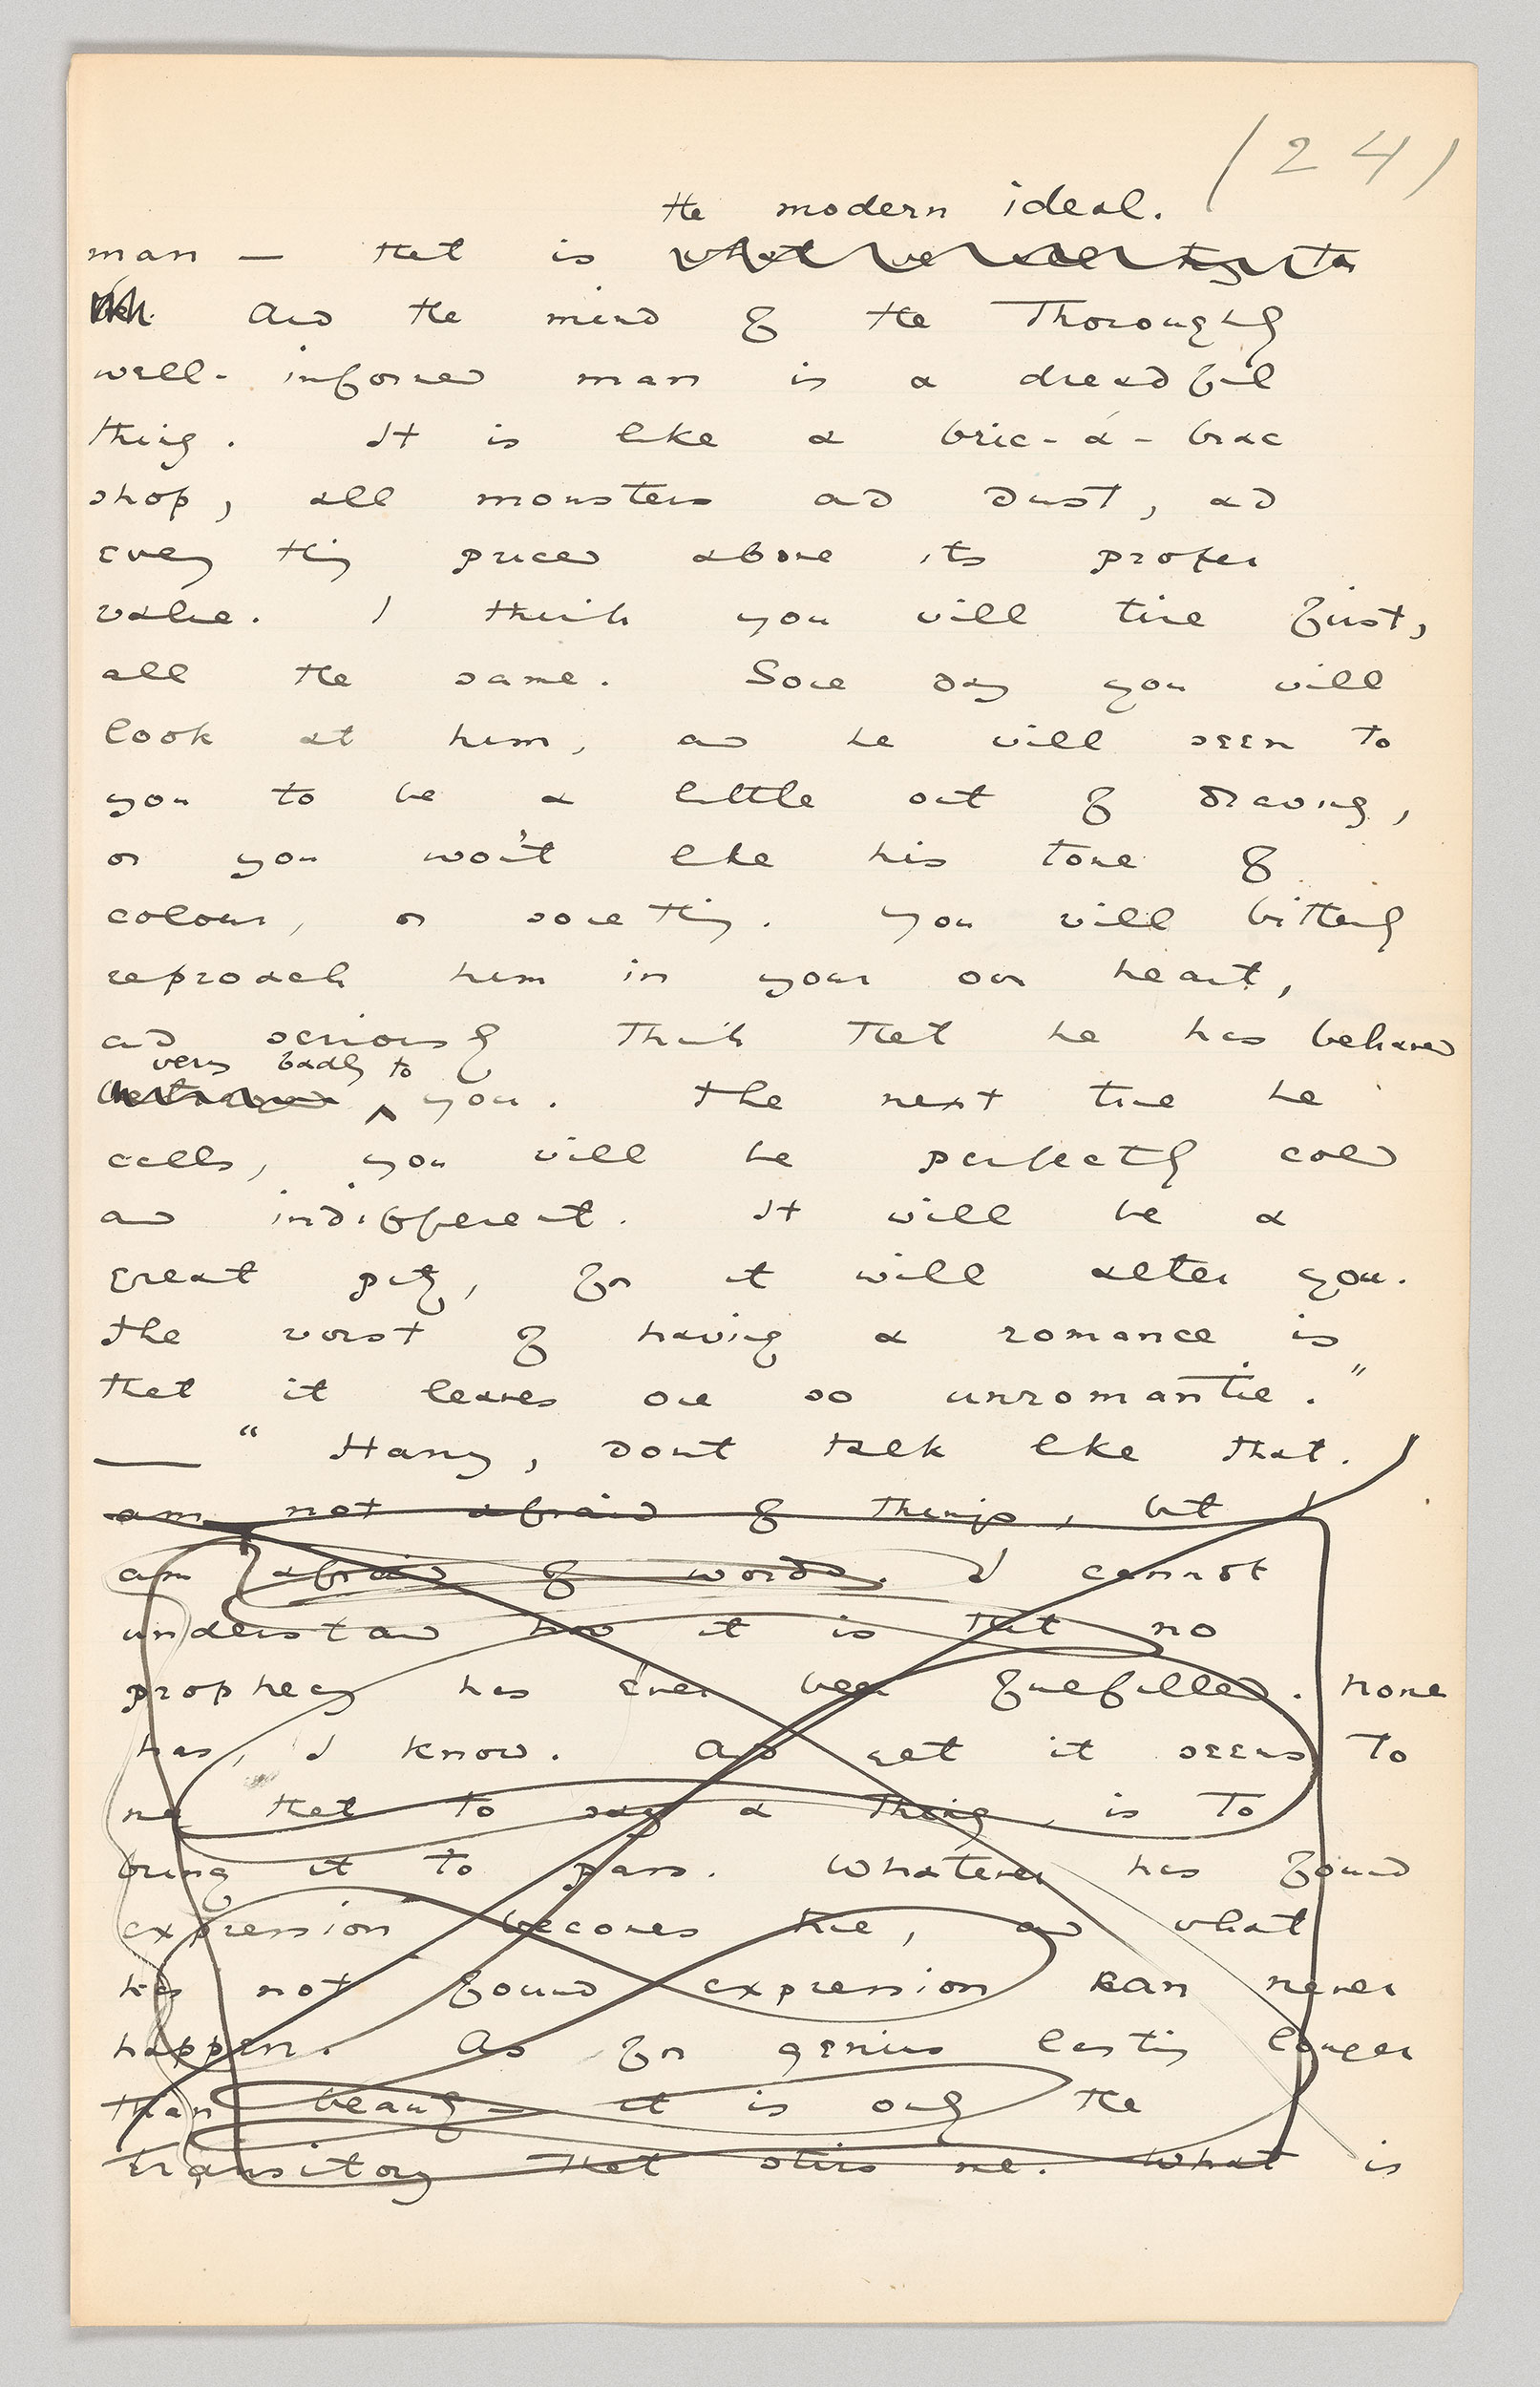 (24)
the modern ideal.
man — that is what we all try to
And the mind of the Thoroughly
well-informed man is a dreadful
thing. It is like a bric-à-brac
shop, all monsters and dust, and
every thing priced above its proper
value. I think you will tire first,
all the same. Some day you will
look at him, and he will seem to
you to be a little out of drawing,
or you won't like his tone of
colour, or something. You will bitterly
reproach him in your own heart,
and seriously think that he has behaved
very badly to
you. The next time he
calls, you will be perfectly cold
and indifferent. It will be a
great pity, for it will alter you.
The worst of having a romance is
that it leaves one so unromantic."
— "Harry, dont talk like that. I
am not afraid of things, but I
am afraid of words. I cannot
understand how it is that no
prophecy has ever been fulfilled. None
has, I know. And yet it seems to
me that to say a thing is to
bring it to pass. Whatever has found
expression becomes true, and what
has not found expression can never
happen. As for genius lasting longer
than beauty — it is only the
transitory that stirs me. What is